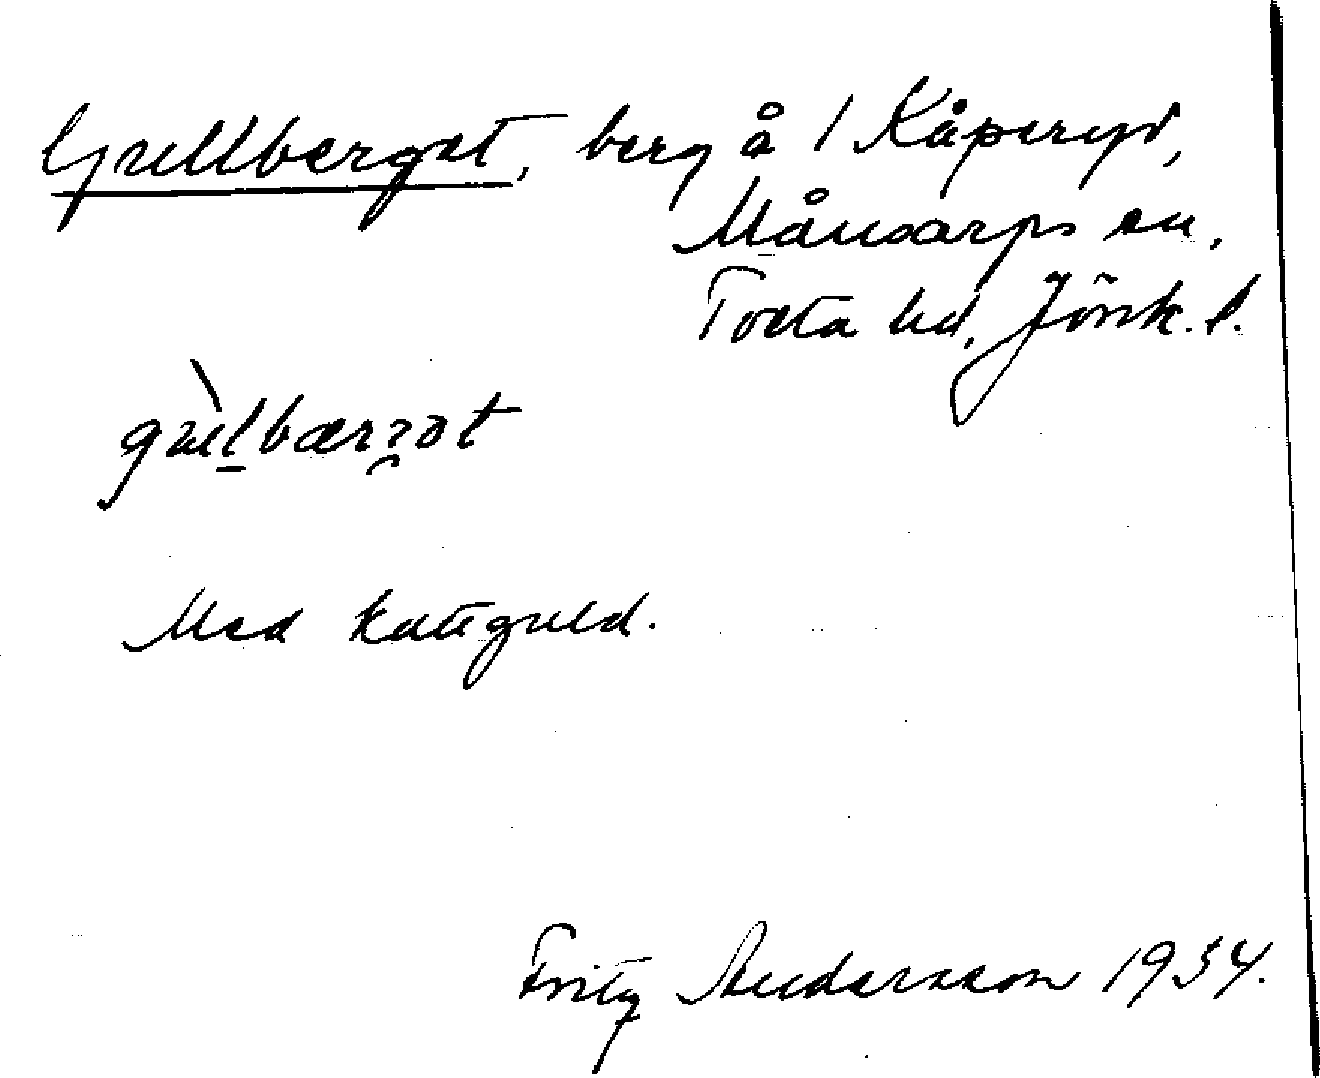 Gullberget, berg å 1 Kåperyd,
Månsarps sn,
Tveta hd, Jönk. l.
Med kattguld.
Fritz Andersson 1934.